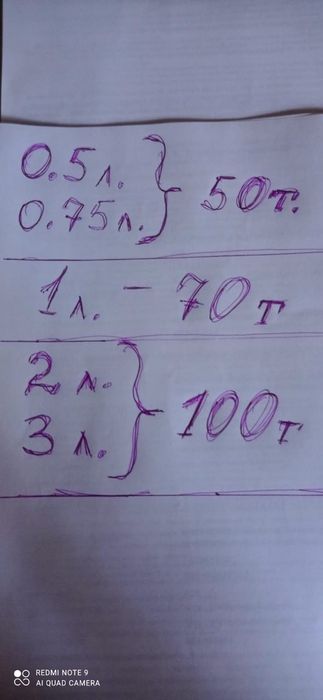 0.5 л.
0.75 л. } 50 т.
1 л. - 70 т
2 л.
3 л. } 100 т
REDMI NOTE 9
AI QUAD CAMERA